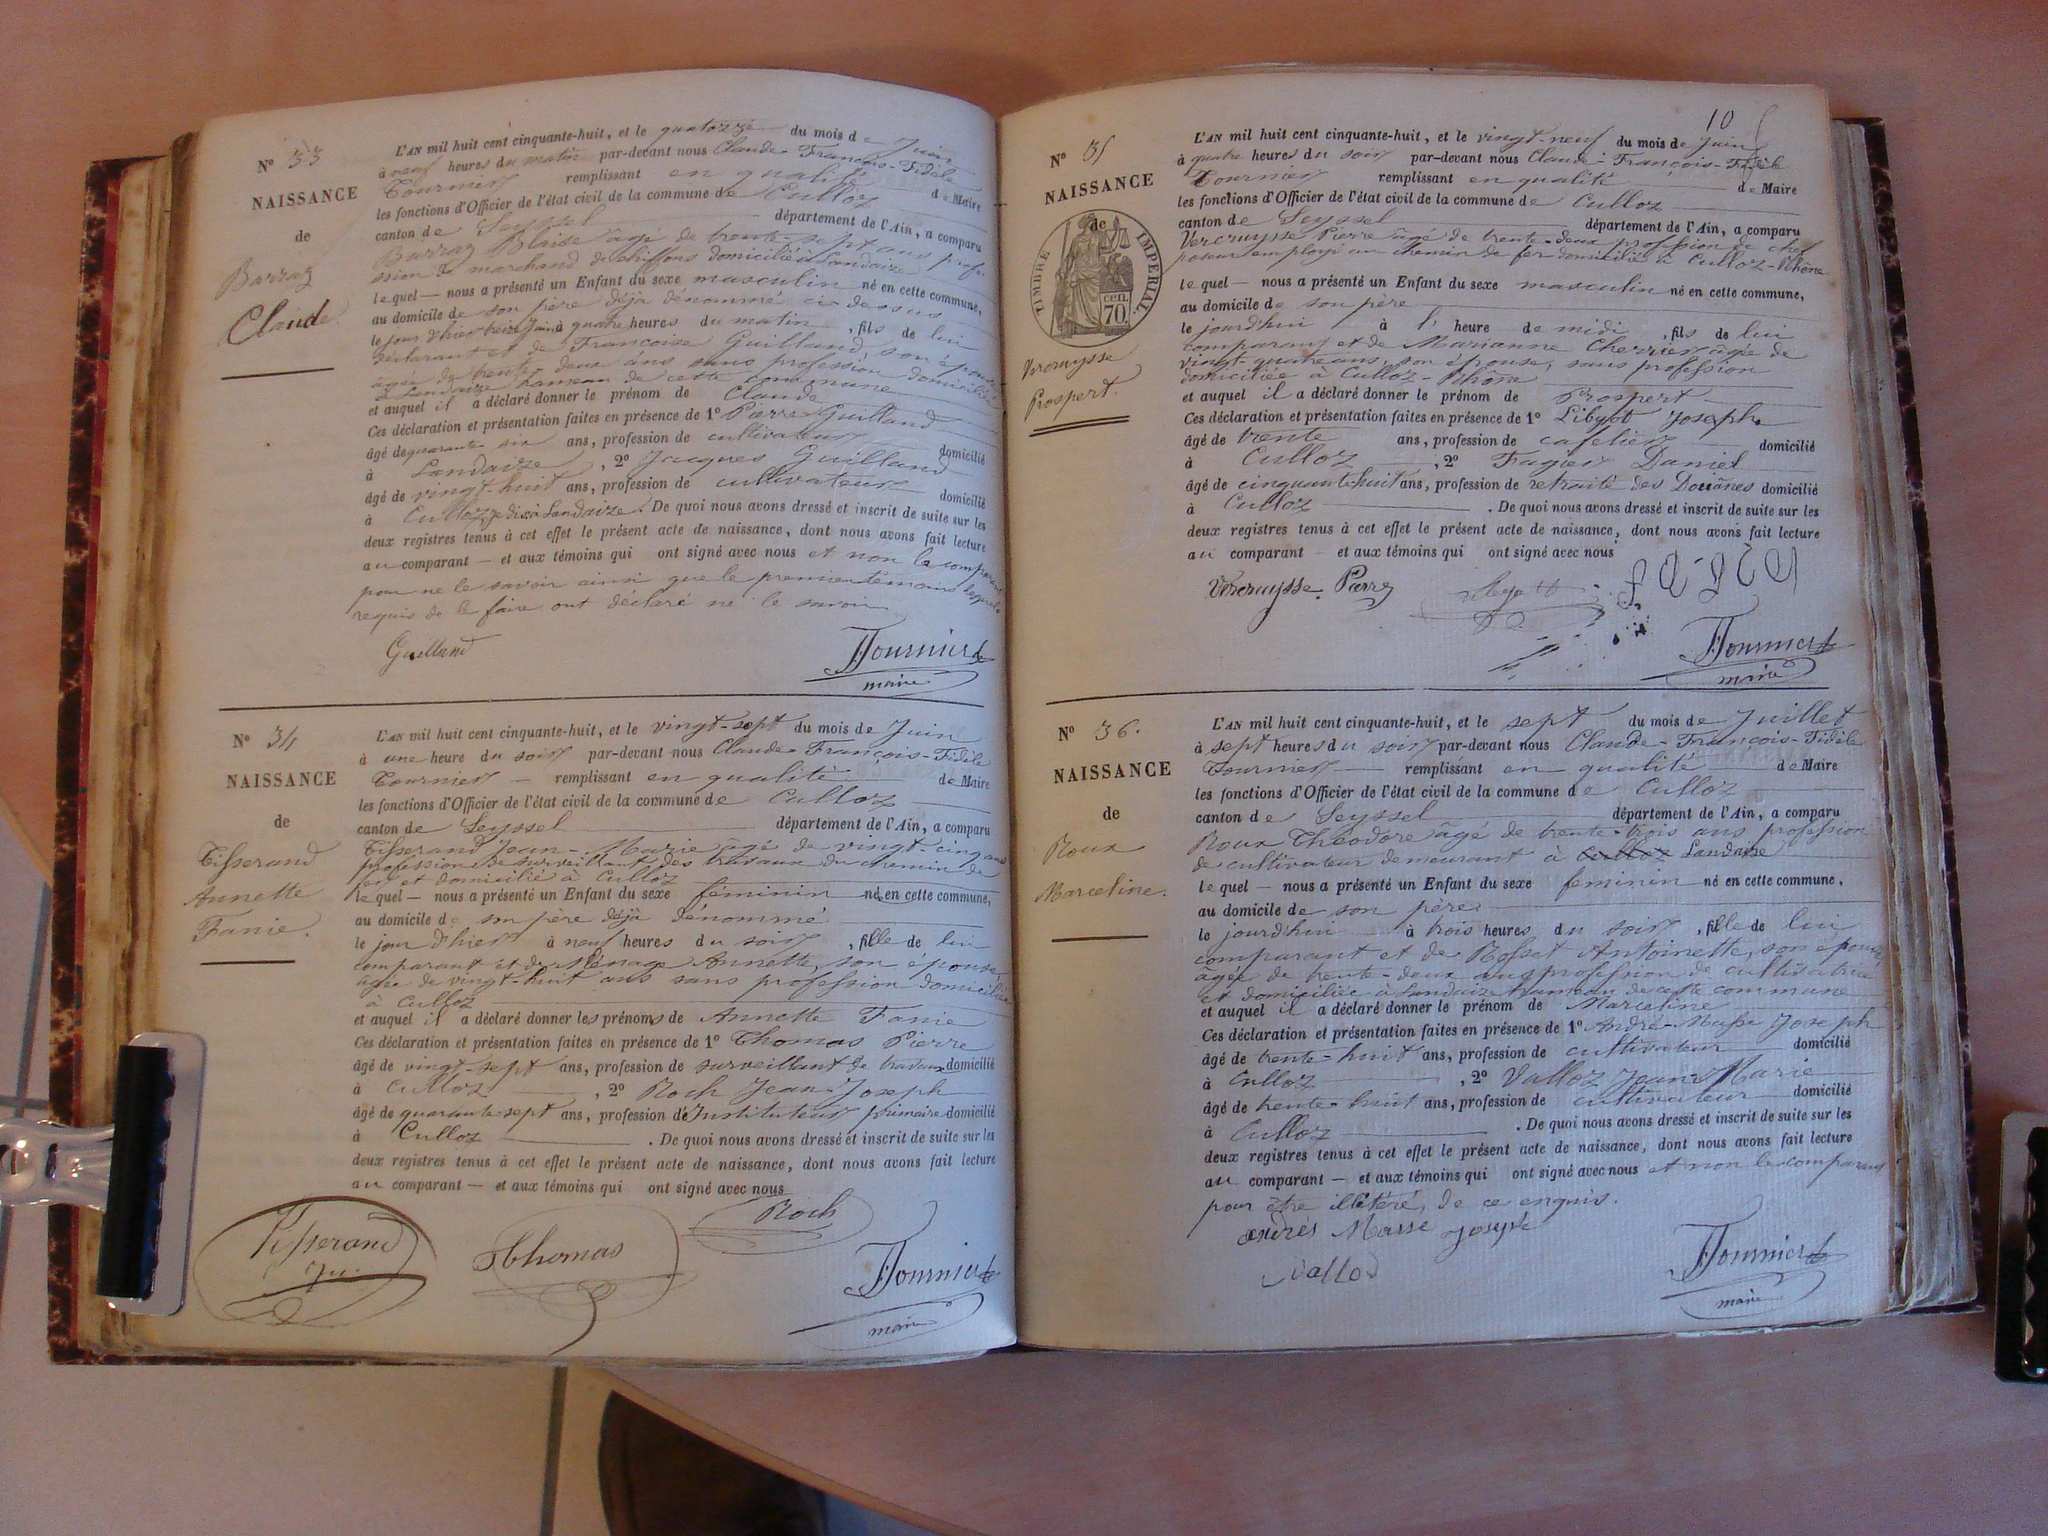 N° 33
NAISSANCE
de
Barraz
Claude.
L'AN mil huit cent cinquante-huit, et le quatorze du mois de Juin
à neuf heures du matin par-devant nous Claude-François-Fidèle
Tournier remplissant en qualité de Maire
les fonctions d'Officier de l'état civil de la commune de Culloz
canton de Seyssel département de l'Ain, a comparu
Barraz Blaise âgé de trente-sept ans profes
sion de marchand de chiffons domicilié à Landaize
lequel — nous a présenté un Enfant du sexe masculin né en cette commune,
au domicile de son père déjà dénommé ci dessus
le jour d'hier treize Juin à quatre heures du matin, fils de lui
déclarant et de Francoise Guilland, son épouse
âgée de trente-deux ans sans profession domiciliée
à Landaize hameau de cette commune
et auquel il a déclaré donner le prénom de Claude
Ces déclaration et présentation faites en présence de 1° Pierre Guilland
âgé de quarante-six ans, profession de cultivateur domicilié
à Landaize, 2° Jacques Guilland
âgé de vingt-huit ans, profession de cultivateur domicilié
à Culloz, à Landaize. De quoi nous avons dressé et inscrit de suite sur les
deux registres tenus à cet effet le présent acte de naissance, dont nous avons fait lecture
au comparant — et aux témoins qui ont signé avec nous et non le comparant
pour ne le savoir ainsi que le premier témoins lesquels
requis de le faire ont déclaré ne le savoir
Guilland
Tournier
maire
N° 34
NAISSANCE
de
Tisserand
Annette
Fanie.
L'AN mil huit cent cinquante-huit, et le vingt-sept du mois de Juin
à une heure du soir par-devant nous Claude-François-Fidèle
Tournier — remplissant en qualité de Maire
les fonctions d'Officier de l'état civil de la commune de Culloz
canton de Seyssel département de l'Ain, a comparu
Tisserand Jean-Marie âgé de vingt cinq ans
profession de surveillant des travaux du chemin de
fer et domicilié à Culloz
lequel — nous a présenté un Enfant du sexe féminin née en cette commune,
au domicile de son père déjà dénommé
le jour d'hier à neuf heures du soir, fille de lui
comparant et de Ménage Annette, son épouse,
âgée de vingt-huit ans sans profession domiciliée
à Culloz
et auquel il a déclaré donner les prénoms de Annette Fanie
Ces déclaration et présentation faites en présence de 1° Thomas Pierre
âgé de vingt-sept ans, profession de surveillant de travaux domicilié
à Culloz, 2° Roch Jean-Joseph
âgé de quarante-sept ans, profession d'Instituteur primaire domicilié
à Culloz. De quoi nous avons dressé et inscrit de suite sur les
deux registres tenus à cet effet le présent acte de naissance, dont nous avons fait lecture
au comparant — et aux témoins qui ont signé avec nous
Tisserand
Thomas
Roch
Tournier
maire
10
N° 35
NAISSANCE
de
TIMBRE IMPERIAL.
70 cen.
Vercruysse
Prospert.
L'AN mil huit cent cinquante-huit, et le vingt-neuf du mois de Juin
à quatre heures du soir par-devant nous Claude-François-Fidèle
Tournier remplissant en qualité de Maire
les fonctions d'Officier de l'état civil de la commune de Culloz
canton de Seyssel département de l'Ain, a comparu
Vercruysse Pierre âgé de trente-deux profession de chef
poseur employé au chemin de fer domicilié à Culloz-Rhône
lequel — nous a présenté un Enfant du sexe masculin né en cette commune,
au domicile de son père
le jourd'hui à l'heure de midi, fils de lui
comparant et de Marianne Cherrier âgée de
vingt-quatre ans, son épouse, sans profession
domiciliée à Culloz-Rhône
et auquel il a déclaré donner le prénom de Prospert
Ces déclaration et présentation faites en présence de 1° Libyot Joseph
âgé de trente ans, profession de cafetier domicilié
à Culloz, 2° Fagier Daniel
âgé de cinquante-huit ans, profession de retraité des Douanes domicilié
à Culloz. De quoi nous avons dressé et inscrit de suite sur les
deux registres tenus à cet effet le présent acte de naissance, dont nous avons fait lecture
au comparant — et aux témoins qui ont signé avec nous
Vercruysse Pierre
Tournier
maire
N° 36.
NAISSANCE
de
Roux
Marceline.
L'AN mil huit cent cinquante-huit, et le sept du mois de Juillet
à sept heures du soir par-devant nous Claude-François-Fidèle
Tournier — remplissant en qualité de Maire
les fonctions d'Officier de l'état civil de la commune de Culloz
canton de Seyssel département de l'Ain, a comparu
Roux Théodore âgé de trente-trois ans profession
de cultivateur demeurant à Culloz Landaize
lequel — nous a présenté un Enfant du sexe féminin né en cette commune,
au domicile de son père
le jourd'hui à trois heures du soir, fille de lui
comparant et de Rosset Antoinette, son épouse,
âgée de trente-deux ans profession de cultivatrice
et domiciliée à Landaize hameau de cette commune
et auquel il a déclaré donner le prénom de Marceline
Ces déclaration et présentation faites en présence de 1° André-Masse Joseph
âgé de trente-huit ans, profession de cultivateur domicilié
à Culloz, 2° Valloz Jean-Marie
âgé de trente-huit ans, profession de cultivateur domicilié
à Culloz. De quoi nous avons dressé et inscrit de suite sur les
deux registres tenus à cet effet le présent acte de naissance, dont nous avons fait lecture
au comparant — et aux témoins qui ont signé avec nous et non le comparant
pour être illétéré, de ce enquis.
andrés Masse joseph
vallod
Tournier
maire